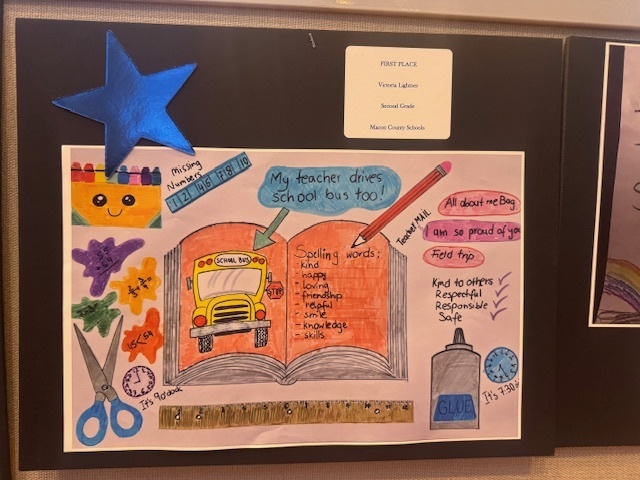 FIRST PLACE
Victoria Lightner
Second Grade
Macon County Schools
Missing
Numbers
My teacher drives
school bus too!
Teacher MAIL
All about me Bag
I am so proud of you
Field trip
SCHOOL BUS
STOP
Spelling words:
- kind
- happy
- loving
- friendship
- helpful
- smile
- knowledge
- skills
Kind to others
Respectful
Responsible
Safe
It's 9 o'clock
GLUE
It's 7:30